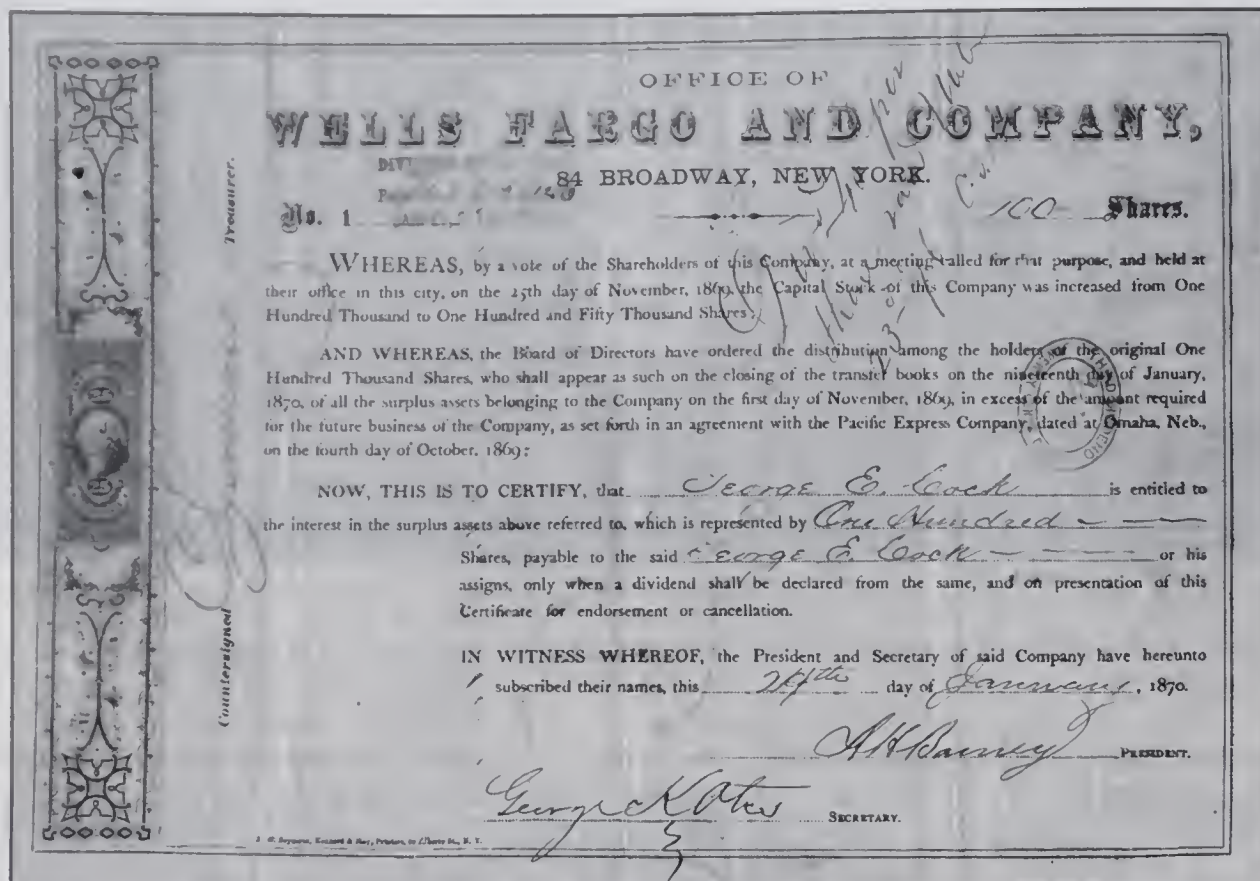 OFFICE OF
WELLS FARGO AND COMPANY,
84 BROADWAY, NEW YORK.
No. 1
100 Shares.
WHEREAS, by a vote of the Shareholders of this Company, at a meeting called for that purpose, and held at
their office in this city, on the 25th day of November, 1869, the Capital Stock of this Company was increased from One
Hundred Thousand to One Hundred and Fifty Thousand Shares;
AND WHEREAS, the Board of Directors have ordered the distribution among the holders of the original One
Hundred Thousand Shares, who shall appear as such on the closing of the transfer books on the nineteenth day of January,
1870, of all the surplus assets belonging to the Company on the first day of November, 1869, in excess of the amount required
for the future business of the Company, as set forth in an agreement with the Pacific Express Company, dated at Omaha, Neb.,
on the fourth day of October, 1869:
NOW, THIS IS TO CERTIFY, that George E. Cock is entitled to
the interest in the surplus assets above referred to, which is represented by One Hundred
Shares, payable to the said George E. Cock or his
assigns, only when a dividend shall be declared from the same, and on presentation of this
Certificate for endorsement or cancellation.
IN WITNESS WHEREOF, the President and Secretary of said Company have hereunto
subscribed their names, this 24th day of January, 1870.
A H Barney PRESIDENT.
George K Otis SECRETARY.
Countersigned
Treasurer.